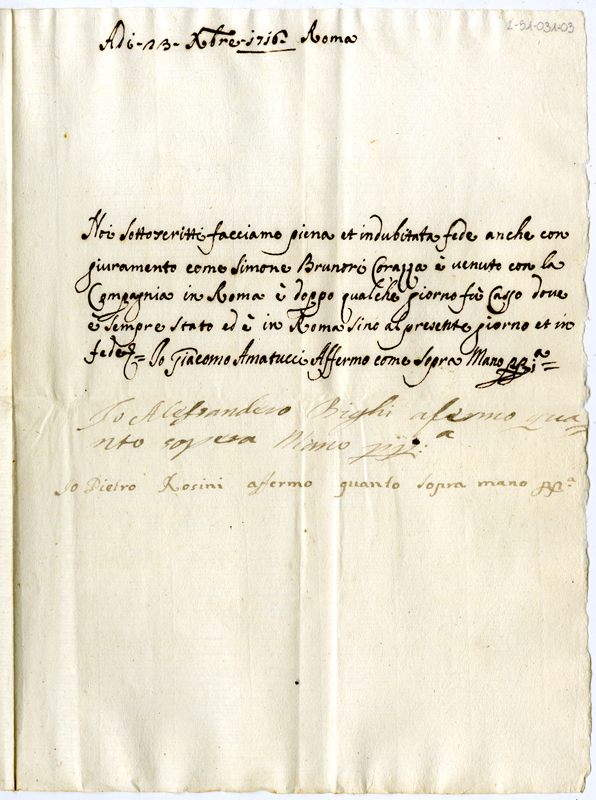 1-51-031-03
Adi - 23 - Xbre - 1716 Roma
Noi sottoscritti facciamo piena et indubitata fede anche con
giuramento come Simone Brunori Corazza è venuto con la
Compagnia in Roma è doppo qualche giorno fù Casso dove
è sempre stato ed è in Roma sino al presente giorno et in
fede = Io Giacomo Amatucci Affermo come sopra Mano ppia =
Io Alessandero Righi afermo qua=
nto sopera Mano ppa
Io Pietro Rosini affermo quanto sopra mano ppa